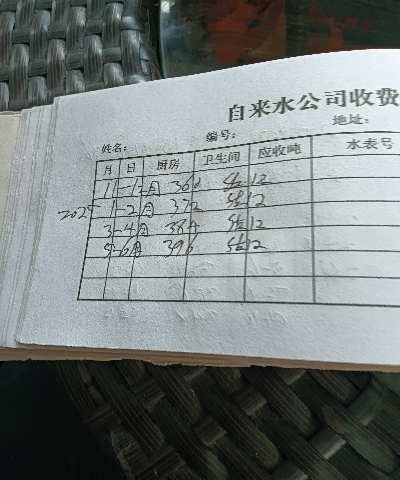 自来水公司收费
姓名: 编号: 地址:
月 日 厨房 卫生间 应收吨 水表号
11-12月 360 12
2025 1-2月 372 12
3-4月 384 12
5-6月 396 12